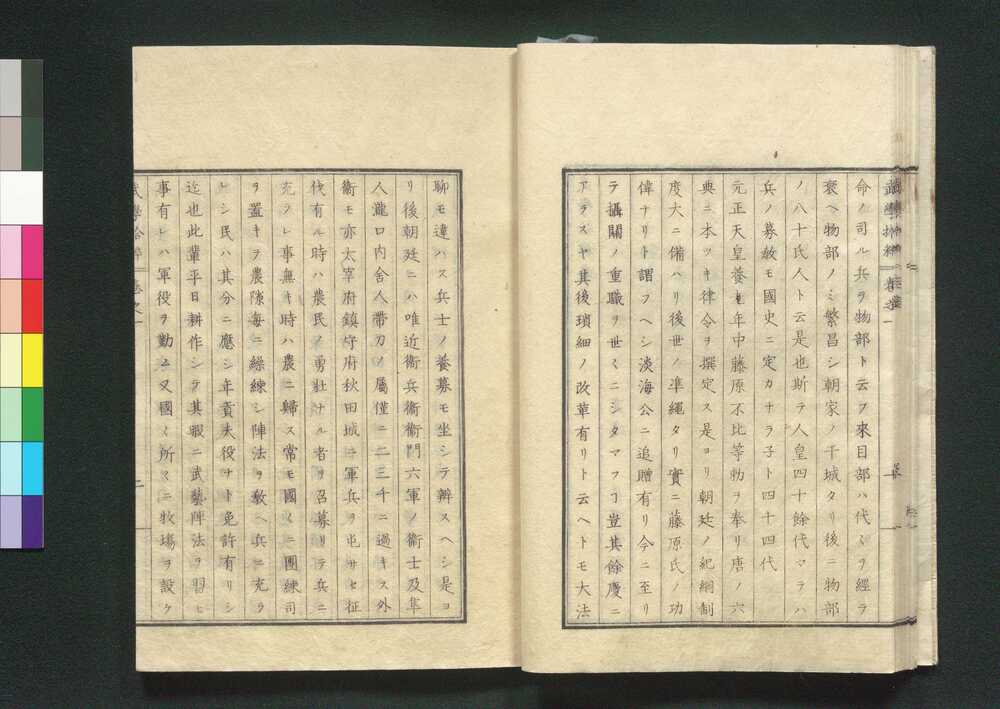 命ノ司ル兵ヲ物部ト云フ來目部ハ代〻ヲ經ラ
衰ヘ物部ノミ繁昌シ朝家ノ干城タリ後ニ物部
ノ八十氏人ト云是也斯ラ人皇四十餘代マラハ
兵ノ募敘モ國史ニ定カナラ子ト四十四代
元正天皇養老年中藤原不比等勅ヲ奉リ唐ノ六
典ニ本ツキ律令ヲ撰定ス是ヨリ朝廷ノ紀綱制
度大ニ備ハリ後世ノ準繩タリ實ニ藤原氏ノ功
偉ナリト謂フヘシ淡海公ニ追贈有リ今ニ至リ
テ攝關ノ重職ヲ世〻ニシタマフヿ豈其餘慶ニ
アラスヤ其後瑣細ノ改革有リト云ヘトモ大法
聊モ違ハス兵士ノ養募モ坐シテ辨スヘシ是ヨ
リ後朝廷ニハ唯近衞兵衞衞門六軍ノ衞士及隼
人瀧口内舍人帶刀ノ屬僅ニ二三千ニ過キス外
衞モ亦太宰府鎮守府秋田城ニ軍兵ヲ屯サセ征
伐有ル時ハ農民ノ勇壯ナル者ヲ召募リラ兵ニ
充ラレ事無キ時ハ農ニ歸ス常モ國〻ニ團練司
ヲ置キラ農隙毎ニ繰練シ陣法ヲ敎ヘ兵ニ充ラ
レシ民ハ其分ニ應シ年貢夫役ナト免許有リシ
迄也此輩平日耕作シラ其暇ニ武藝陣法ヲ習ヒ
事有レハ軍役ヲ勤ム又國〻所〻ニ牧塲ヲ設ケ